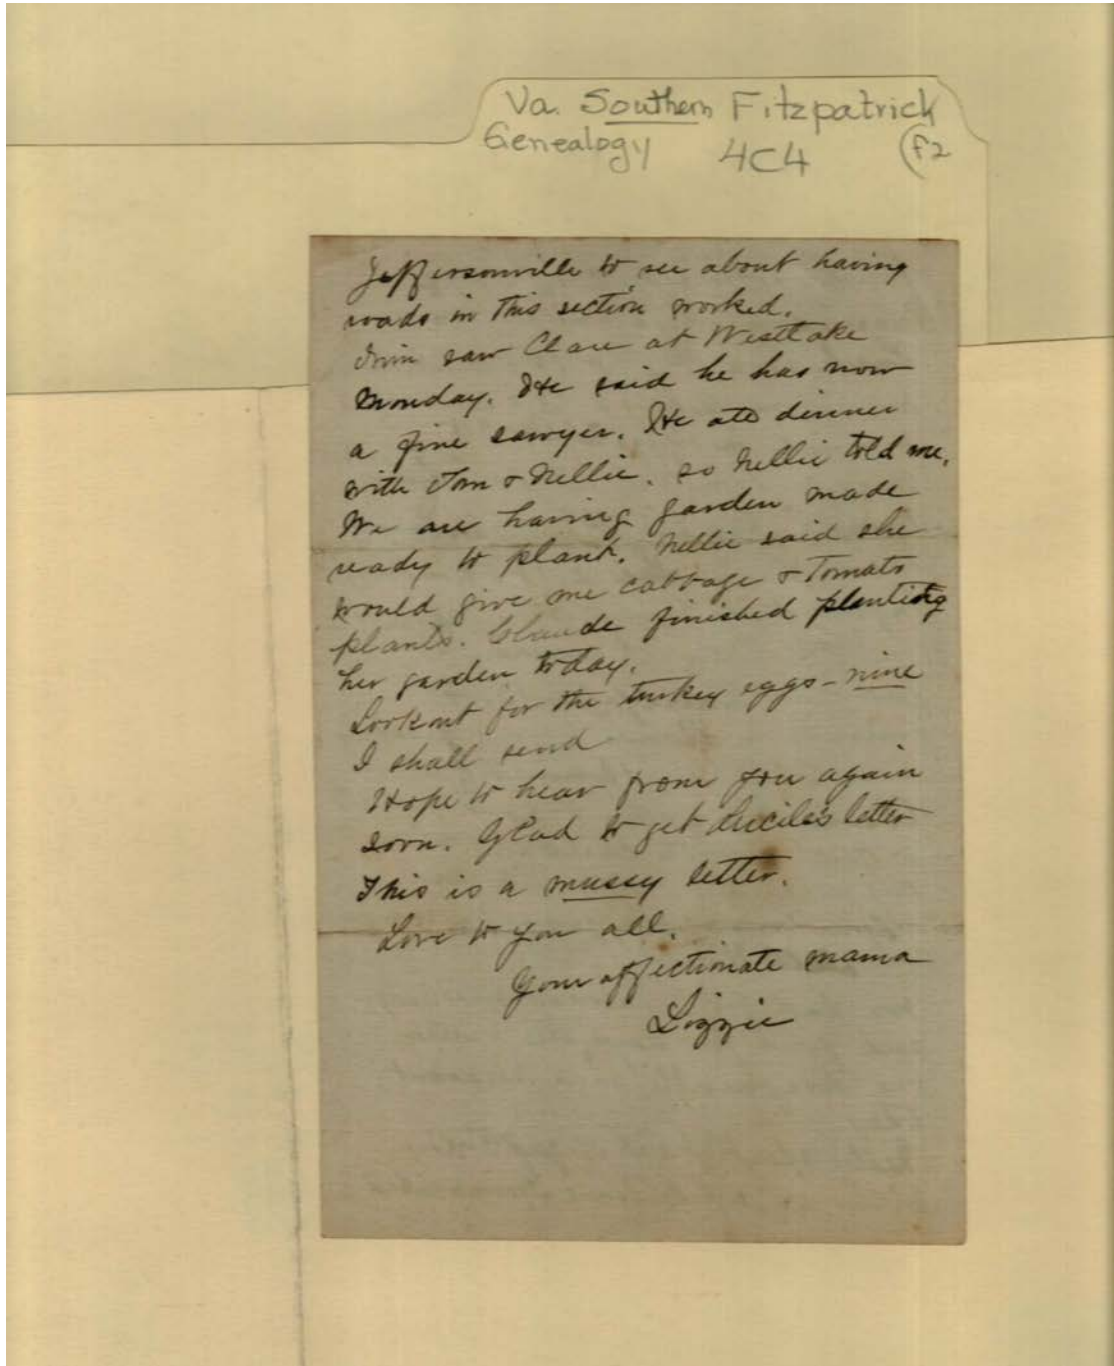 Va. Southern Fitzpatrick
Genealogy 4C4 (F2
Jeffersonville to see about having
roads in this section worked.
Jim saw Clare at Westlake
Monday. He said he has now
a fine sawyer. He ate dinner
with Tom & Nellie, so Nellie told me.
We are having garden made
ready to plant. Nellie said she
would give me cabbage & Tomato
plants. Claude finished planting
her garden today.
Lookout for the turkey eggs - nine
I shall send
Hope to hear from you again
soon. Glad to get Lucile's letter
This is a mussy letter.
Love to you all.
Your affectionate mama
Lizzie